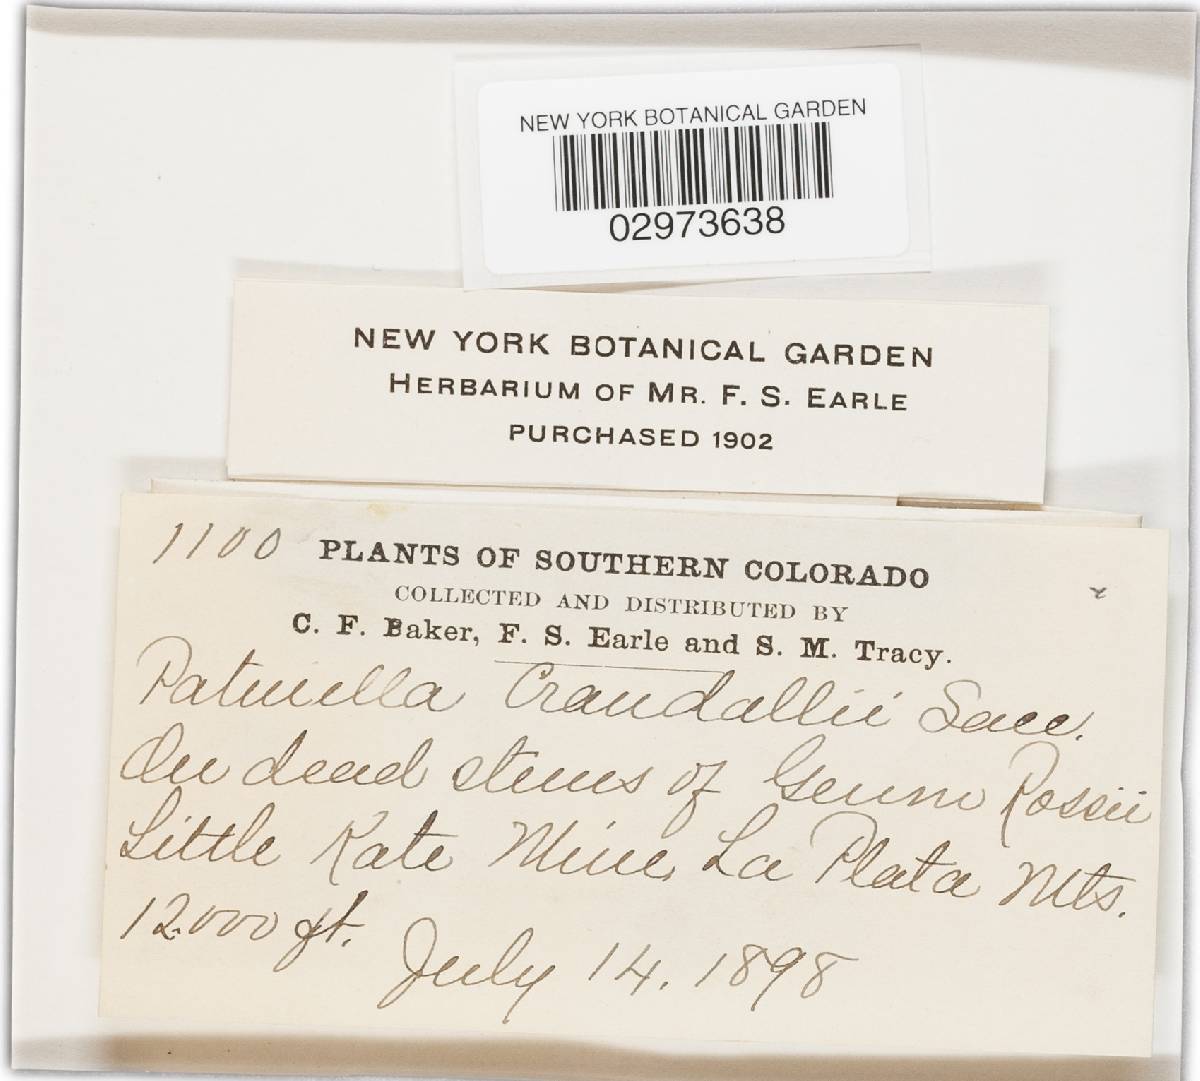 NEW YORK BOTANICAL GARDEN
02973638
NEW YORK BOTANICAL GARDEN
HERBARIUM OF MR. F. S. EARLE
PURCHASED 1902
1100
PLANTS OF SOUTHERN COLORADO
COLLECTED AND DISTRIBUTED BY
C. F. Baker, F. S. Earle and S. M. Tracy.
Patinella Crandallii Sacc.
On dead stems of Geum Rossii
Little Kate Mine, La Plata Mts.
12000 ft.
July 14, 1898